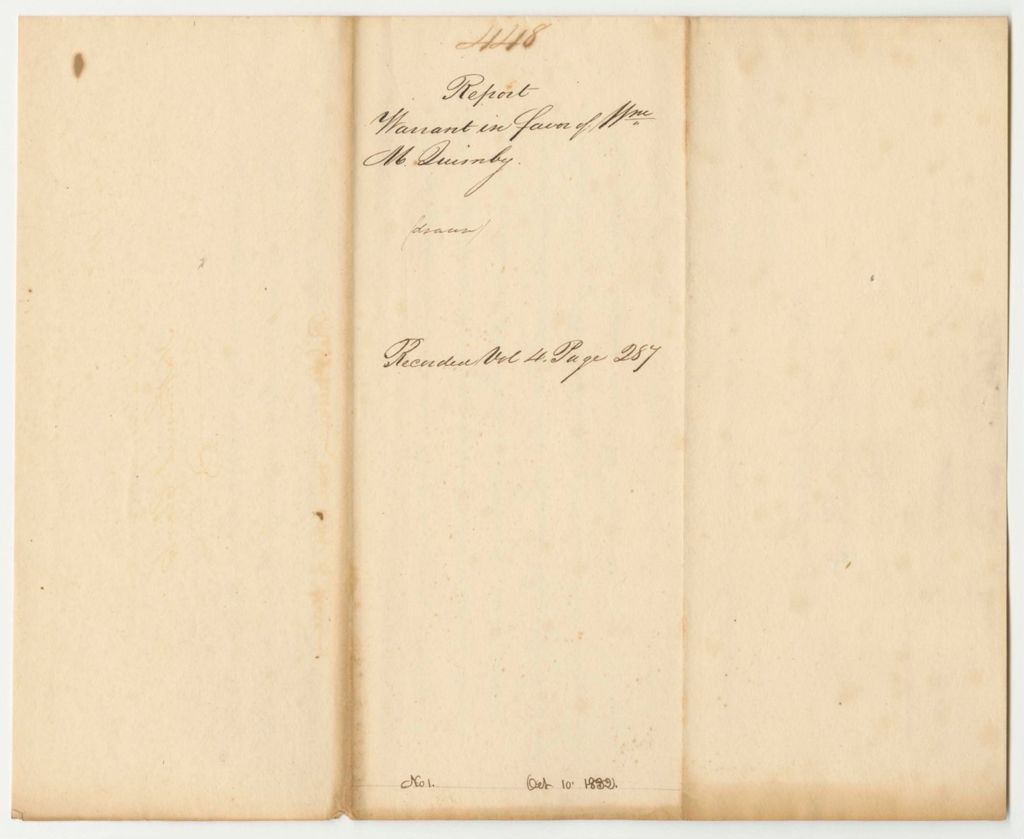 448
Report
Warrant in favor of Wm
M. Quimby.
(drawn)
Recorded Vol 4. Page 287
No 1.
(Oct 10. 1832).